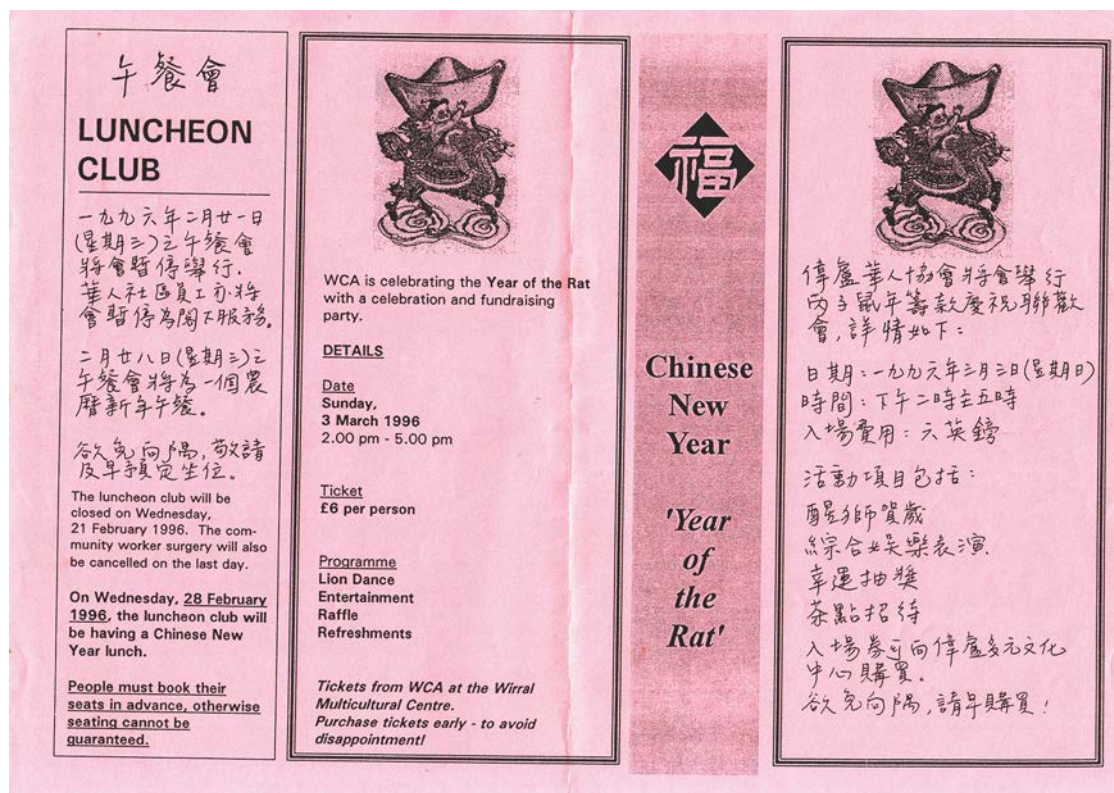 午餐會
LUNCHEON
CLUB
一九九六年二月廿一日
(星期三)之午餐會
將會暫停舉行.
華人社區員工亦將
會暫停為閣下服務。
二月廿八日(星期三)之
午餐會將為一個農
曆新年午餐。
欲免向隅,敬請
及早預定坐位。
The luncheon club will be
closed on Wednesday,
21 February 1996. The com-
munity worker surgery will also
be cancelled on the last day.
On Wednesday, 28 February
1996, the luncheon club will
be having a Chinese New
Year lunch.
People must book their
seats in advance, otherwise
seating cannot be
guaranteed.
WCA is celebrating the Year of the Rat
with a celebration and fundraising
party.
DETAILS
Date
Sunday,
3 March 1996
2.00 pm - 5.00 pm
Ticket
£6 per person
Programme
Lion Dance
Entertainment
Raffle
Refreshments
Tickets from WCA at the Wirral
Multicultural Centre.
Purchase tickets early - to avoid
disappointment!
福
Chinese
New
Year
'Year
of
the
Rat'
偉盧華人協會將會舉行
丙子鼠年籌款慶祝聯歡
會,詳情如下:
日期:一九九六年三月三日(星期日)
時間:下午二時至五時
入場費用:六英鎊
活動項目包括:
醒獅賀歲
綜合娛樂表演
幸運抽獎
茶點招待
入場券可向偉盧多元文化
中心購買.
欲免向隅,請早購買!